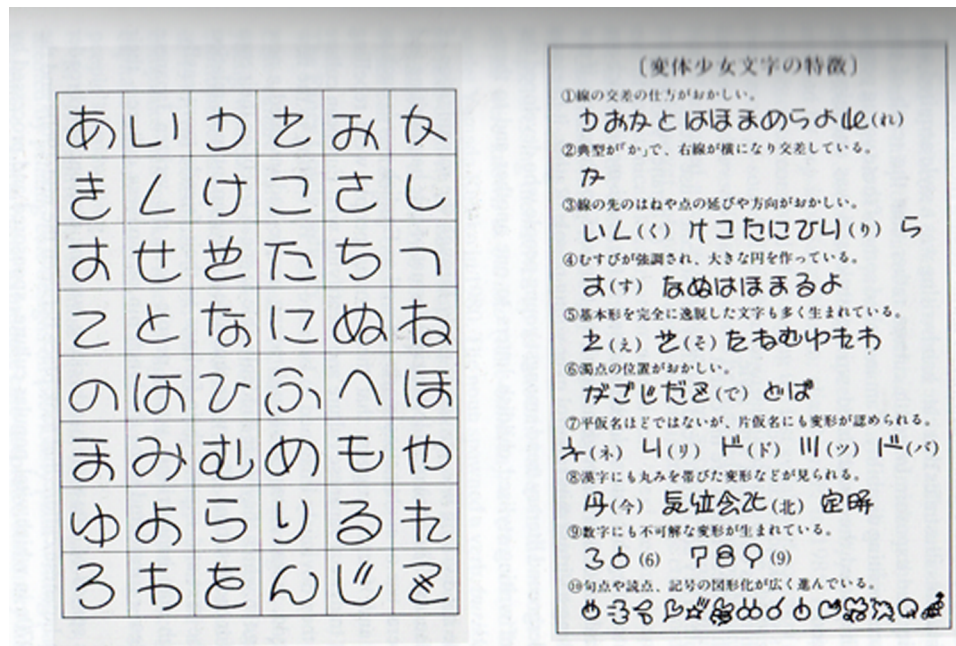 あ い う え お か
き く け こ さ し
す せ そ た ち つ
て と な に ぬ ね
の は ひ ふ へ ほ
ま み む め も や
ゆ よ ら り る れ
ろ わ を ん じ で
〔変体少女文字の特徴〕
①線の交差の仕方がおかしい。
うおかとはほまめらよれ(れ)
②典型が「か」で、右線が横になり交差している。
か
③線の先のはねや点の延びや方向がおかしい。
いく(く) けこたにひり(り) ら
④むすびが強調され、大きな円を作っている。
す(す) なぬはほまるよ
⑤基本形を完全に逸脱した文字も多く生まれている。
え(え) そ(そ) たねむゆれわ
⑥濁点の位置がおかしい。
がごじだで(で) どば
⑦平仮名ほどではないが、片仮名にも変形が認められる。
ネ(ネ) リ(リ) ド(ド) ツ(ツ) バ(バ)
⑧漢字にも丸みを帯びた変形などが見られる。
今(今) 気位会北(北) 定解
⑨数字にも不可解な変形が生まれている。
36(6) 789(9)
⑩句点や読点、記号の図形化が広く進んでいる。